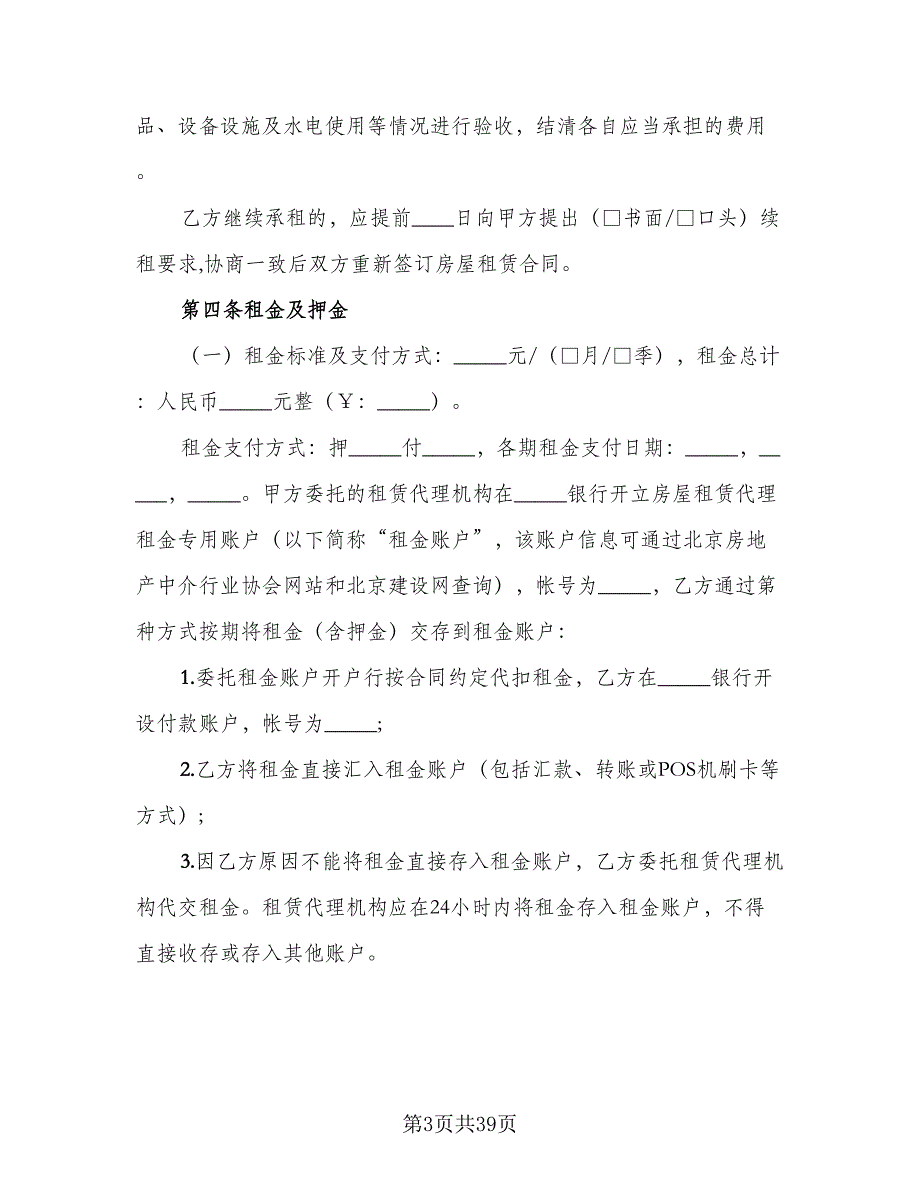 品、设备设施及水电使用等情况进行验收，结清各自应当承担的费用
。
乙方继续承租的，应提前____日向甲方提出（□书面/□口头）续
租要求,协商一致后双方重新签订房屋租赁合同。
第四条租金及押金
（一）租金标准及支付方式：_____元/（□月/□季），租金总计
：人民币_____元整（￥：_____）。
租金支付方式：押_____付_____，各期租金支付日期：_____，__
___，_____。甲方委托的租赁代理机构在_____银行开立房屋租赁代理
租金专用账户（以下简称“租金账户”，该账户信息可通过北京房地
产中介行业协会网站和北京建设网查询），帐号为_____，乙方通过第
种方式按期将租金（含押金）交存到租金账户：
1.委托租金账户开户行按合同约定代扣租金，乙方在_____银行开
设付款账户，帐号为_____;
2.乙方将租金直接汇入租金账户（包括汇款、转账或POS机刷卡等
方式）;
3.因乙方原因不能将租金直接存入租金账户，乙方委托租赁代理机
构代交租金。租赁代理机构应在24小时内将租金存入租金账户，不得
直接收存或存入其他账户。
第3页共39页